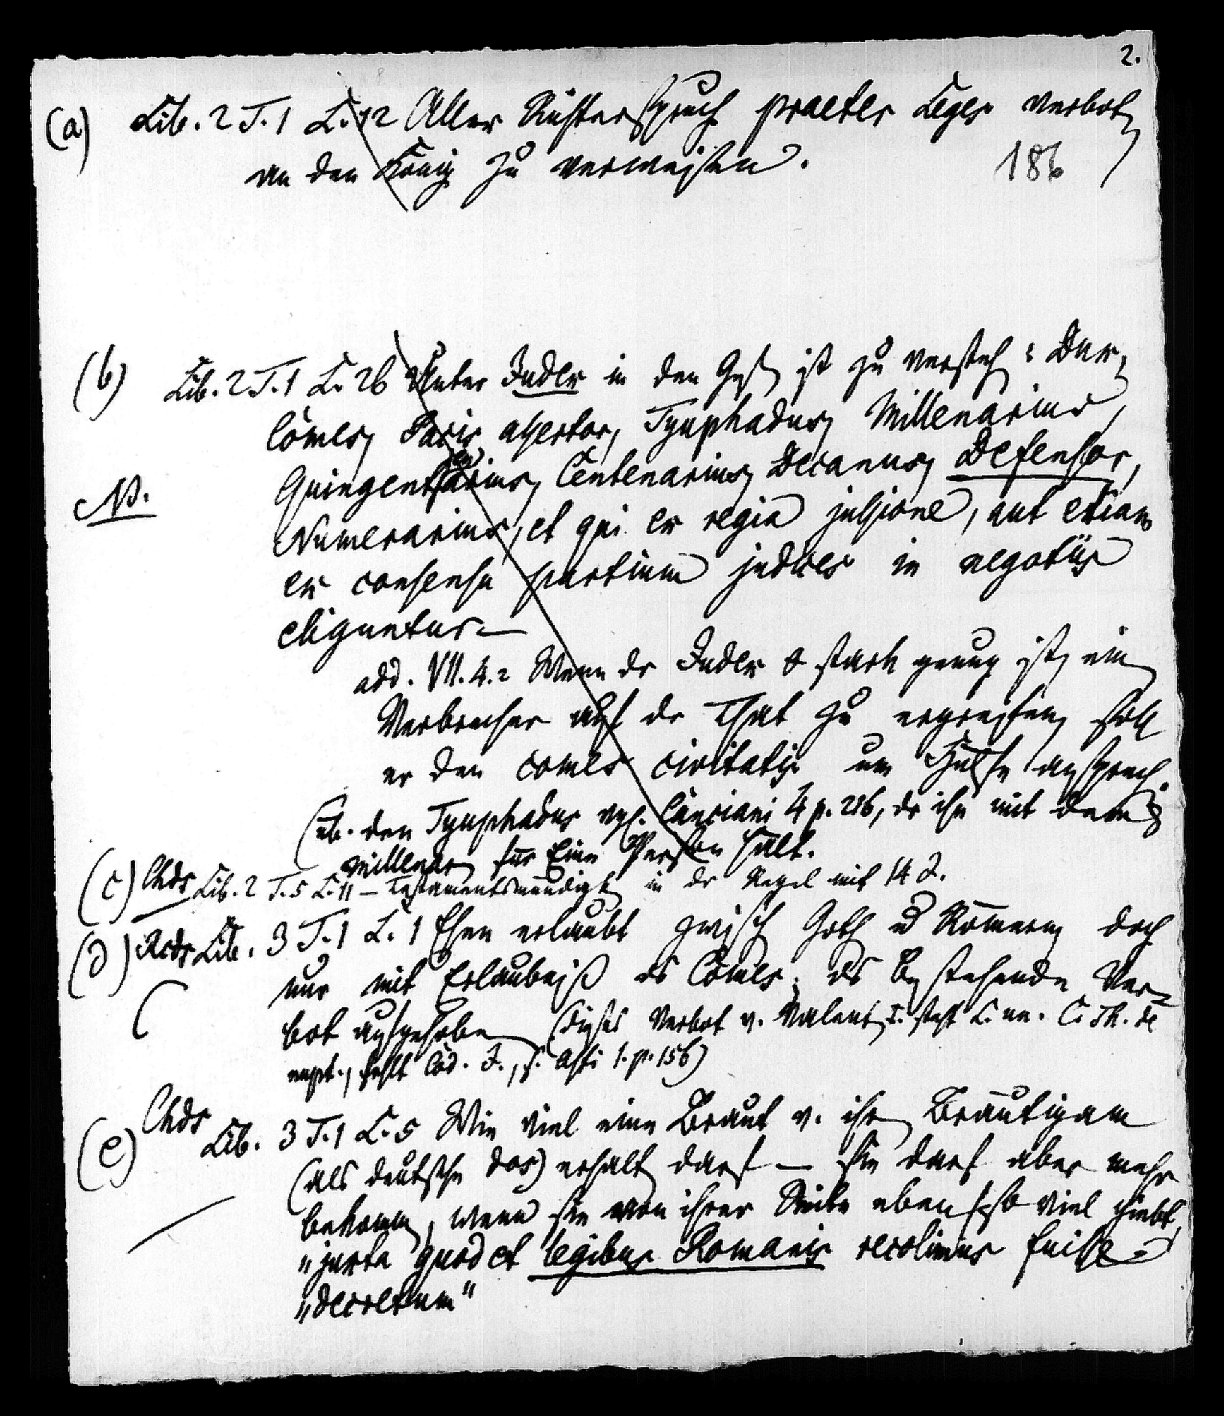 2.
(a) Lib. 2 T. 1 L. 12 Aller Richterspruch praeter leges verbot,
an den König zu verweisen.
186
(b) Lib. 2 T. 1 L. 26 Unter Judex in den Ges. ist zu versteh: Dux,
Comes, Pacis assertor, Tyuphadus, Millenarius,
Quingentenarius, Centenarius, Decanus, Defensor,
NB.
Numerarius, et qui ex regia jussione, aut etiam
ex consensu partium judices in negotiis
eliguntur —
add. VII. 4. 2 Wenn der Judex o stark genug ist, ein
Verbrecher auf der That zu ergreifen, soll
er den comes civitatis um Hülfe ansprech.
(üb. den Tyuphadus vgl. Canciani 4 p. 286, der ihn mit dem
millenar. für Eine Person hält.
(c) Chds Lib. 2 T. 5 L. 11 — Testamentsmündigk. in der Regel mit 14 J.
(d) Rcds Lib. 3 T. 1 L. 1 Ehen erlaubt zwisch Goth u Römern, doch
nur mit Erlaubniß des Comes; das bestehende Ver-
bot aufgehoben (dieses Verbot v. Valent. I. steht L. un. C. Th. de
nupt., fehlt Cod. J., s. Assi 1. p. 156)
(e) Chds Lib. 3 T. 1 L. 5 Wie viel eine Braut v. ihr Bräutigam
(als deutsche dos) erhalt darf — sie darf aber mehr
bekomm, wenn sie von ihrer Seite eben so viel giebt,
"juxta quod et legibus Romanis recolimus fuisse
"decretum"